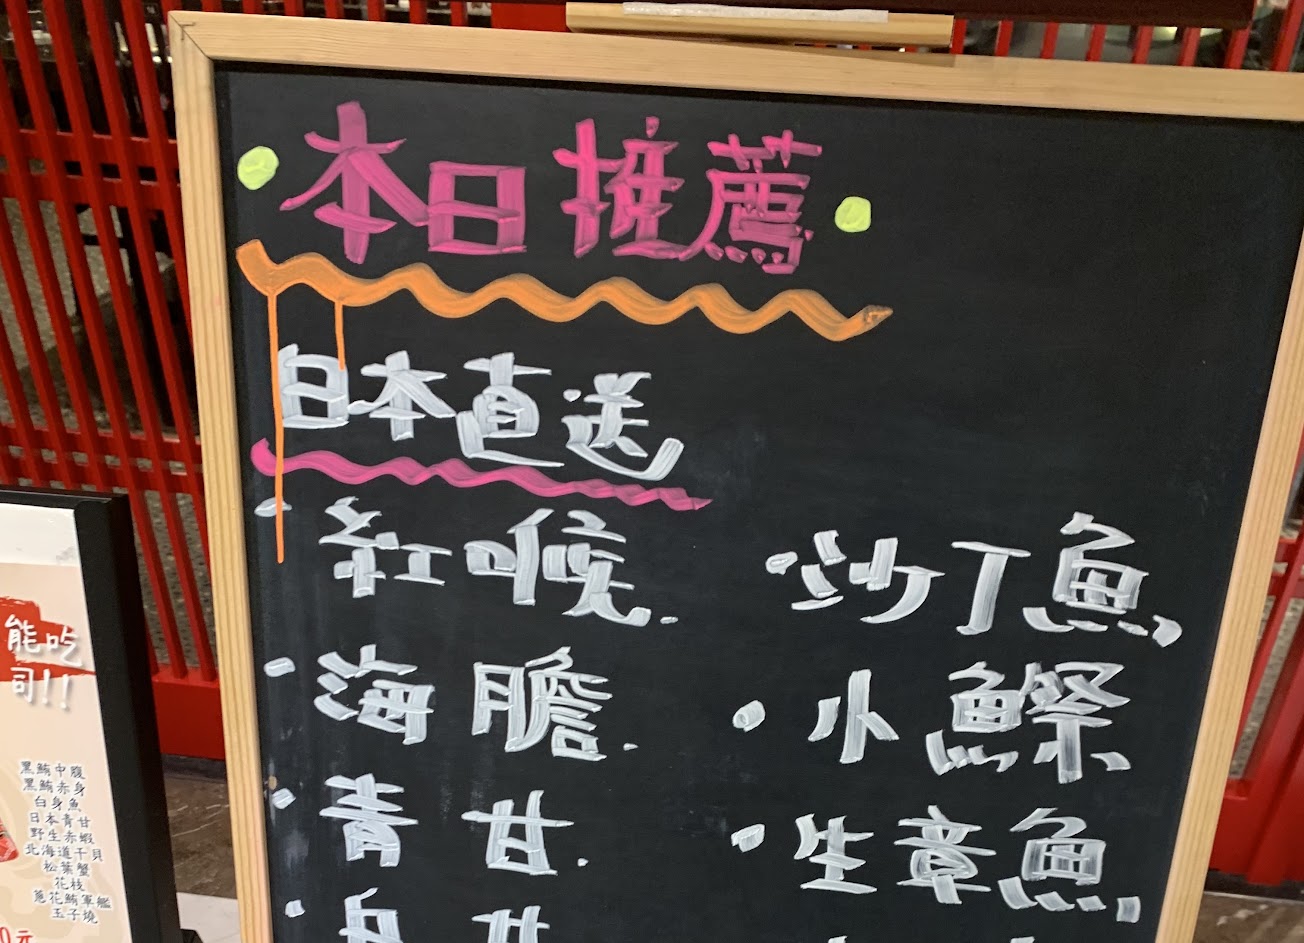 本日推薦
日本直送
紅喉
海膽
青甘
沙丁魚
小鰶
生章魚
能吃
司!!
黑鮪中腹
黑鮪赤身
白身魚
日本青甘
野生赤蝦
北海道干貝
松葉蟹
花枝
蔥花鮪軍艦
玉子燒
0元